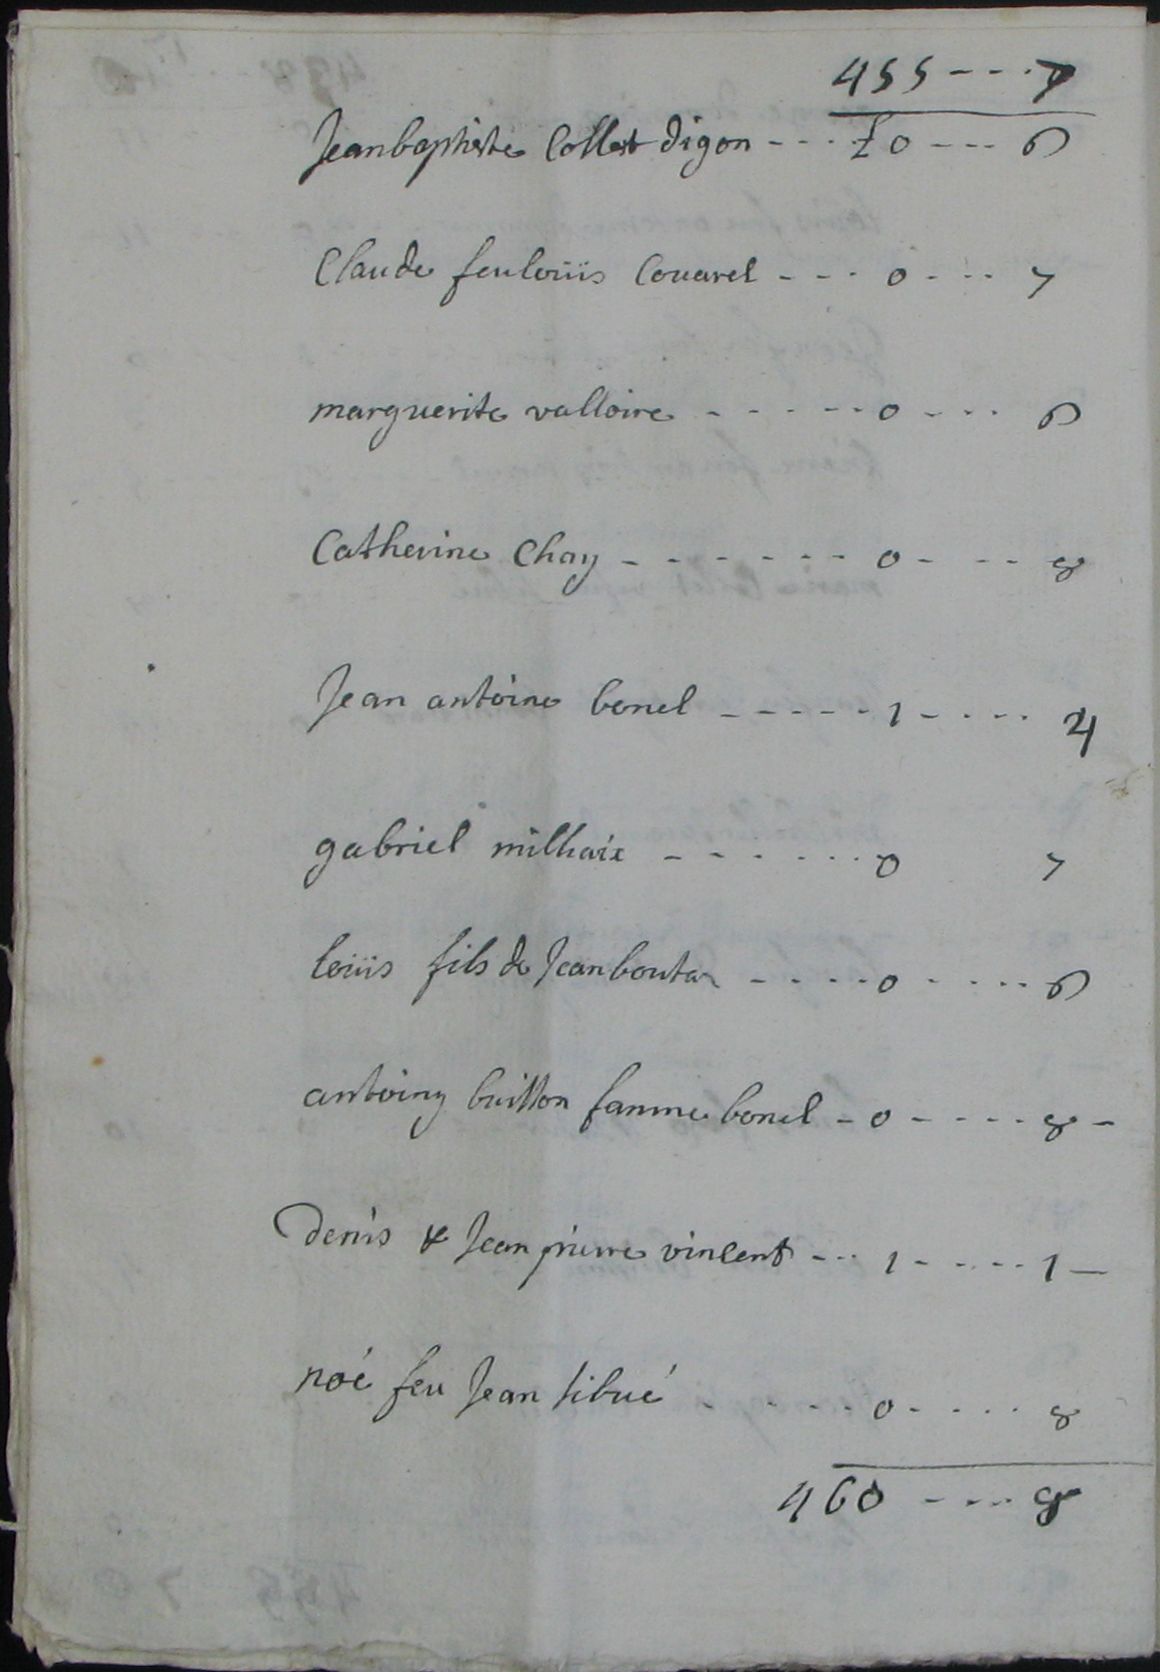 455 --- 7
Jean baptiste Collet digon --- £0 --- 6
Claude feu loüis Couarel --- 0 --- 7
marguerite valloire ----- 0 --- 6
Catherine Chay ------- 0 --- 8
Jean antoine bonel ----- 1 ---- 4
gabriel milhaix ------ 0 7
loüis fils de Jean boutar ---- 0 ---- 6
antoiny buisson famme bonel - 0 ---- 8 -
denis & Jean pierre vincent --- 1 ---- 1 -
noé feu Jean sibué ----- 0 ---- 8
460 --- 8